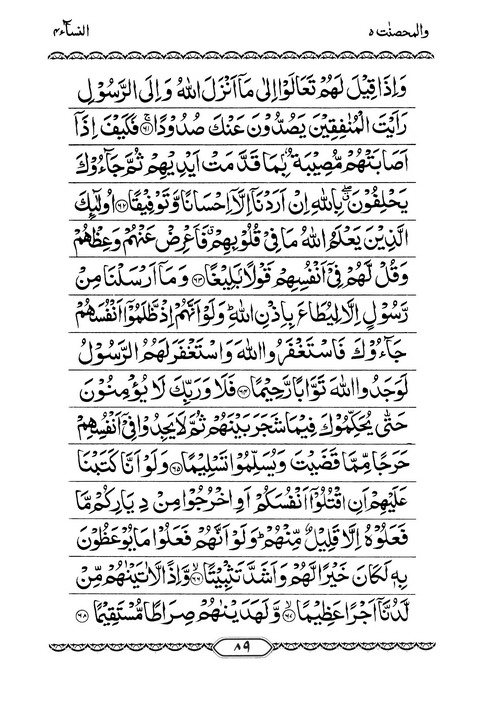 والمحصنٰت ٥ النسآء ٤
وَاِذَا قِيْلَ لَهُمْ تَعَالَوْا اِلٰى مَآ اَنْزَلَ اللّٰهُ وَاِلَى الرَّسُوْلِ
رَاَيْتَ الْمُنٰفِقِيْنَ يَصُدُّوْنَ عَنْكَ صُدُوْدًا ۚ‏﴿۶۱﴾ فَكَيْفَ اِذَآ
اَصَابَتْهُمْ مُّصِيْبَةٌۢ بِمَا قَدَّمَتْ اَيْدِيْهِمْ ثُمَّ جَآءُوْكَ
يَحْلِفُوْنَ ۖ بِاللّٰهِ اِنْ اَرَدْنَآ اِلَّآ اِحْسَانًا وَّتَوْفِيْقًا ﴿۶۲﴾ اُولٰٓئِكَ
الَّذِيْنَ يَعْلَمُ اللّٰهُ مَا فِيْ قُلُوْبِهِمْ ۗ فَاَعْرِضْ عَنْهُمْ وَعِظْهُمْ
وَقُلْ لَّهُمْ فِيْٓ اَنْفُسِهِمْ قَوْلًاۢ بَلِيْغًا ﴿۶۳﴾ وَمَآ اَرْسَلْنَا مِنْ
رَّسُوْلٍ اِلَّا لِيُطَاعَ بِاِذْنِ اللّٰهِ ۗ وَلَوْ اَنَّهُمْ اِذْ ظَّلَمُوْٓا اَنْفُسَهُمْ
جَآءُوْكَ فَاسْتَغْفَرُوا اللّٰهَ وَاسْتَغْفَرَ لَهُمُ الرَّسُوْلُ
لَوَجَدُوا اللّٰهَ تَوَّابًا رَّحِيْمًا ﴿۶۴﴾ فَلَا وَرَبِّكَ لَا يُؤْمِنُوْنَ
حَتّٰى يُحَكِّمُوْكَ فِيْمَا شَجَرَ بَيْنَهُمْ ثُمَّ لَا يَجِدُوْا فِيْٓ اَنْفُسِهِمْ
حَرَجًا مِّمَّا قَضَيْتَ وَيُسَلِّمُوْا تَسْلِيْمًا ﴿۶۵﴾ وَلَوْ اَنَّا كَتَبْنَا
عَلَيْهِمْ اَنِ اقْتُلُوْٓا اَنْفُسَكُمْ اَوِ اخْرُجُوْا مِنْ دِيَارِكُمْ مَّا
فَعَلُوْهُ اِلَّا قَلِيْلٌ مِّنْهُمْ ۗ وَلَوْ اَنَّهُمْ فَعَلُوْا مَا يُوْعَظُوْنَ
بِهٖ لَكَانَ خَيْرًا لَّهُمْ وَاَشَدَّ تَثْبِيْتًا ۙ﴿۶۶﴾ وَّاِذًا لَّاٰتَيْنٰهُمْ مِّنْ
لَّدُنَّآ اَجْرًا عَظِيْمًا ۙ﴿۶۷﴾ وَّلَهَدَيْنٰهُمْ صِرَاطًا مُّسْتَقِيْمًا ﴿۶۸﴾
٨٩